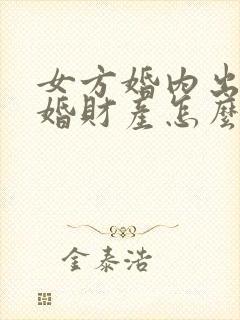 女方婚内出
婚財産怎麼
金泰浩